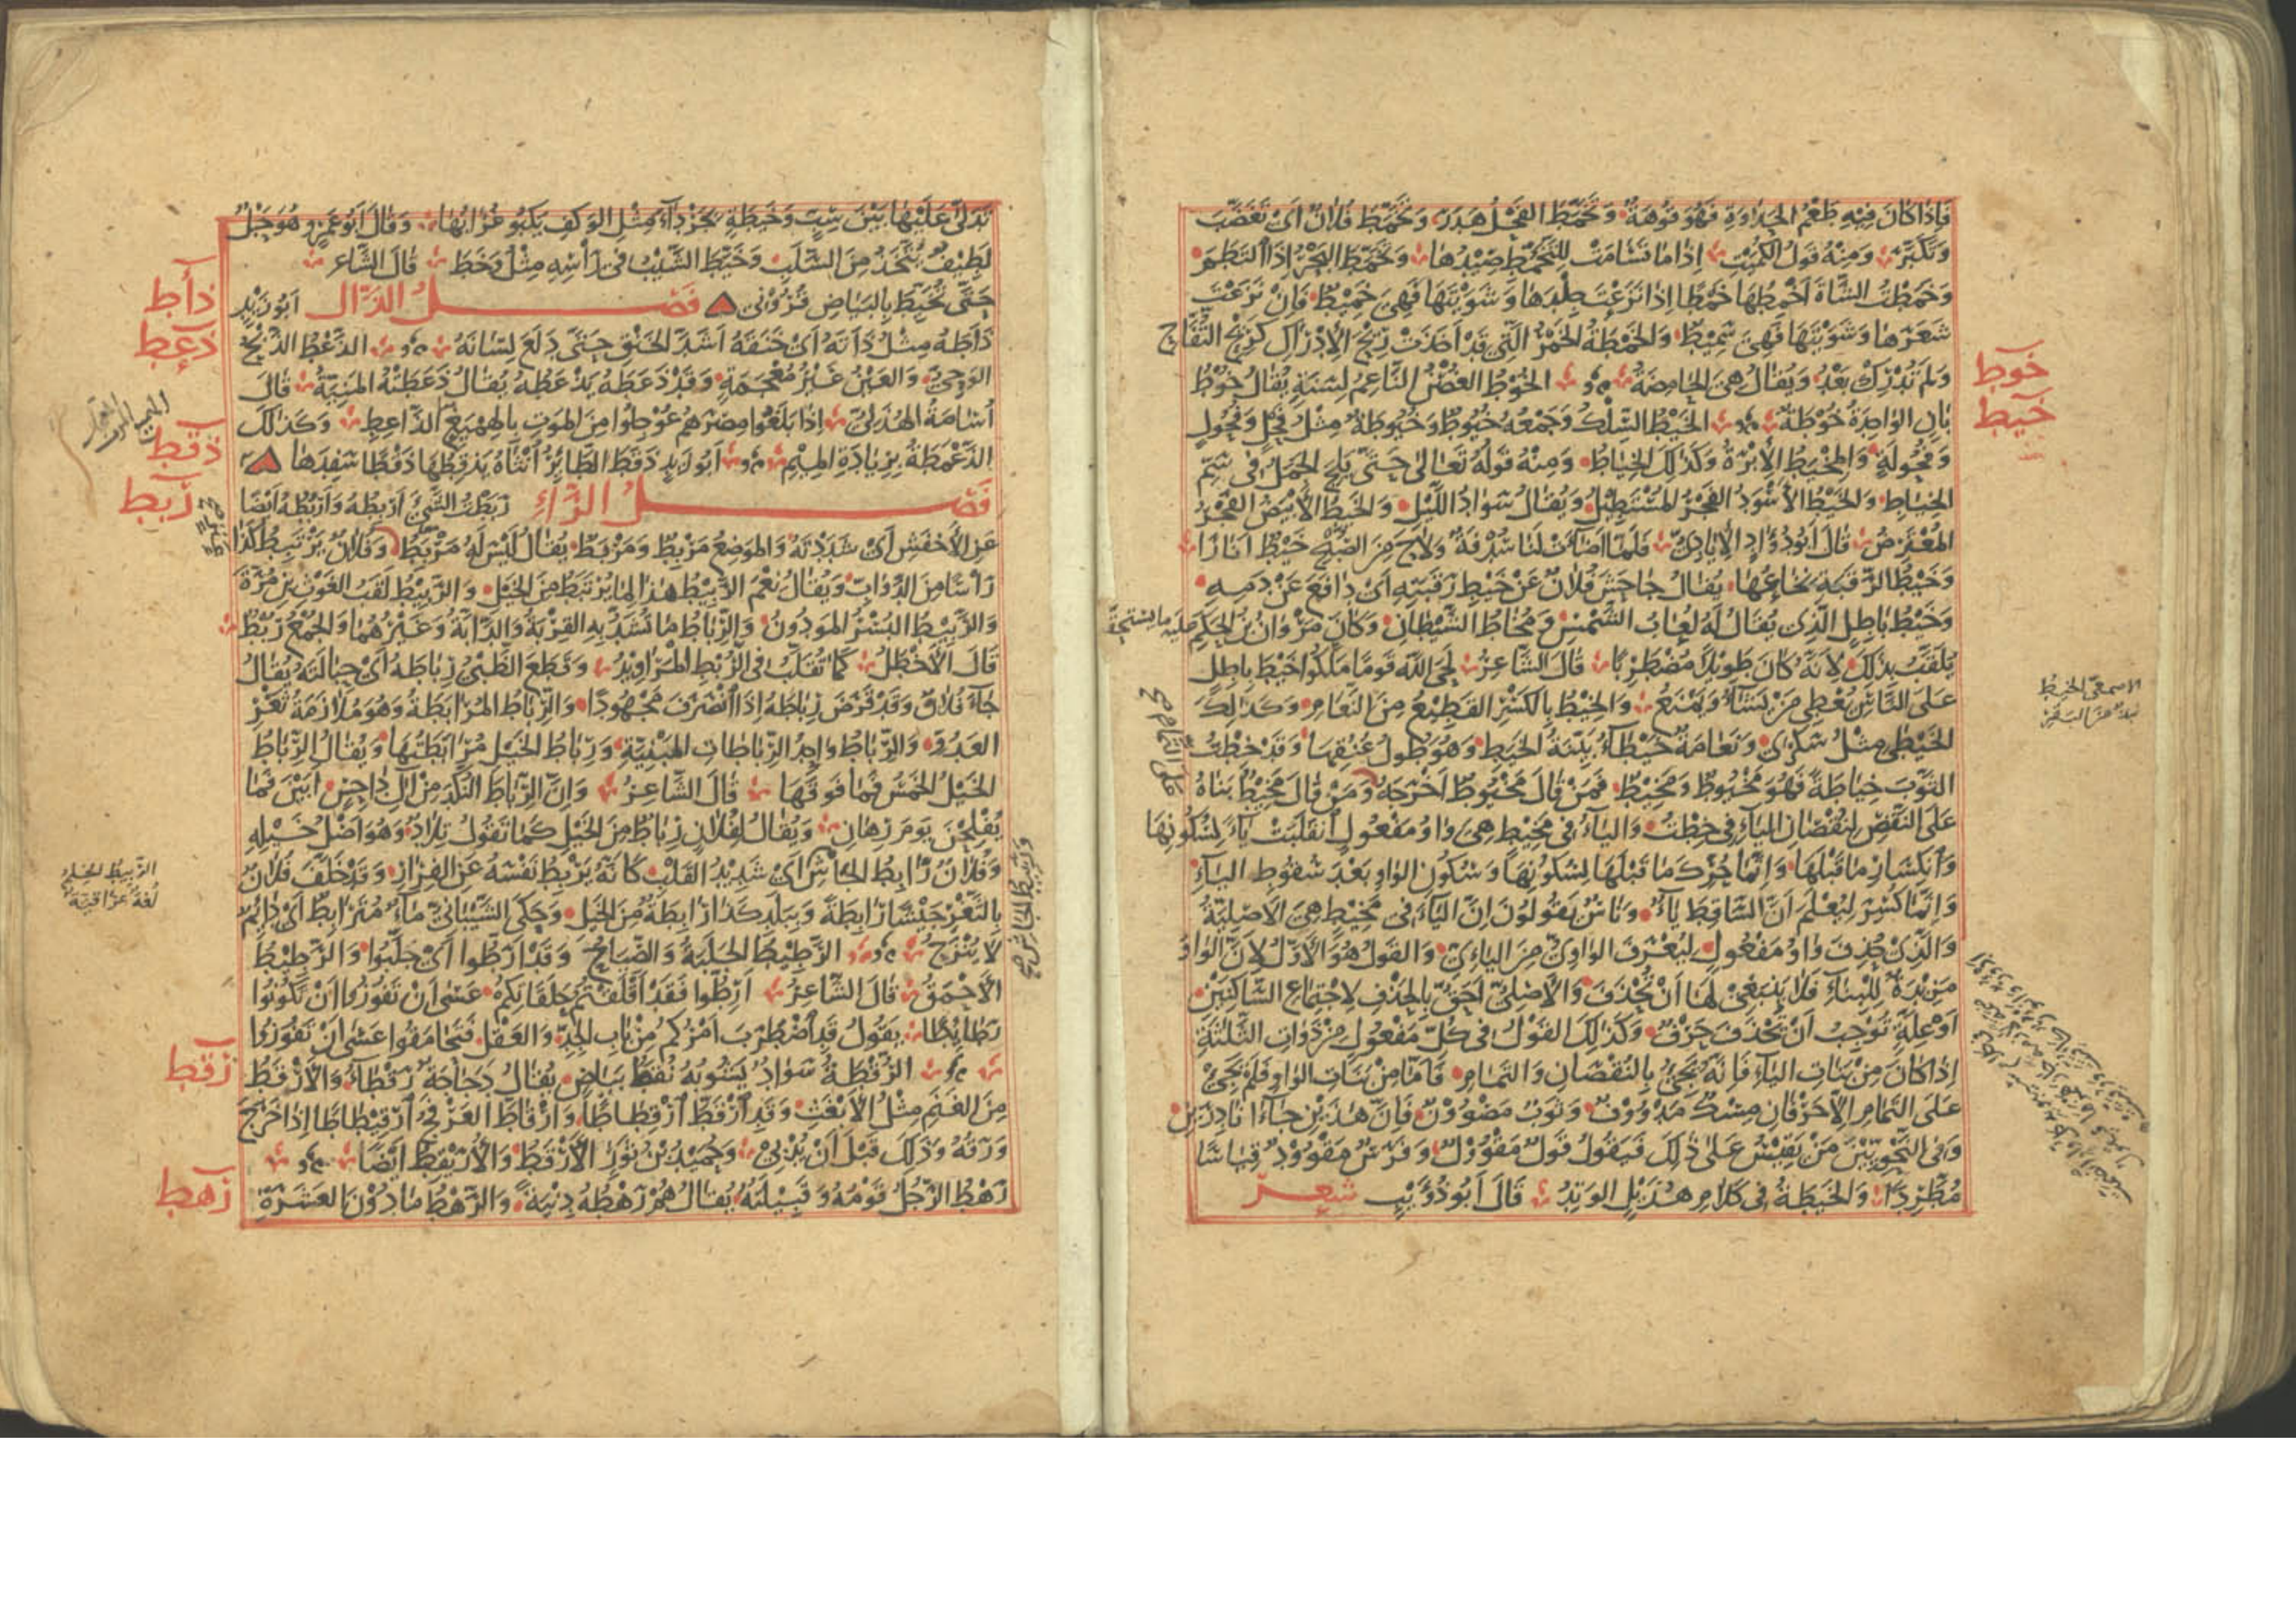 فَاِذَا كَانَ فِيْهِ طَعْمُ الحَلَاوَةِ فَهُوَ فُوَّهَةٌ وَتَخَمَّطَ الفَحْلُ هَدَرَ وَتَخَمَّطَ فُلَانٌ اَىْ تَغَضَّبَ
وَتَكَبَّرَ وَمِنْهُ قَوْلُ الكُمَيْتِ اِذَا مَا تَسَامَتْ لِلتَّخَمُّطِ صِيْدُهَا وَتَخَمَّطَ البَحْرُ اِذَا الْتَطَمَ
وَخَمَطْتُ الشَّاةَ اَخْمِطُهَا خَمْطًا اِذَا نَزَعْتَ جِلْدَهَا وَشَوَيْتَهَا فَهِىَ خَمِيْطٌ فَاِنْ نَزَعْتَ
شَعَرَهَا وَشَوَيْتَهَا فَهِىَ سَمِيْطٌ وَالخَمْطَةُ الخَمْرُ الَّتِى قَدْ اَخَذَتْ رِيْحَ الاِدْرَاكِ كَرِيْحِ التُّفَّاحِ
وَلَمْ تُدْرِكْ بَعْدُ وَيُقَالُ هِىَ الحَامِضَةُ الخُوْطُ الغُصْنُ النَّاعِمُ لِسَنَةٍ يُقَالُ خُوْطُ
خوط
بَانٍ الوَاحِدَةُ خُوْطَةٌ الخَيْطُ السِّلْكُ وَجَمْعُهُ خُيُوْطٌ وَخُيُوْطَةٌ مِثْلُ فَحْلٍ وَفُحُوْلٍ
خيط
وَفُحُوْلَةٍ وَالمِخْيَطُ الاِبْرَةُ وَكَذٰلِكَ الخِيَاطُ وَمِنْهُ قَوْلُهُ تَعَالٰى حَتّٰى يَلِجَ الجَمَلُ فِى سَمِّ
الخِيَاطِ وَالخَيْطُ الاَسْوَدُ الفَجْرُ المُسْتَطِيْلُ وَيُقَالُ سَوَادُ اللَّيْلِ وَالخَيْطُ الاَبْيَضُ الفَجْرُ
المُعْتَرِضُ قَالَ اَبُو دُؤَادٍ الاِيَادِىُّ فَلَمَّا اَضَاءَتْ لَنَا سُدْفَةٌ وَلَاحَ مِنَ الصُّبْحِ خَيْطٌ اَنَارَا
وَخَيْطُ الرَّقَبَةِ نُخَاعُهَا يُقَالُ جَاحَشَ فُلَانٌ عَنْ خَيْطِ رَقَبَتِهِ اَىْ دَافَعَ عَنْ دَمِهِ
وَخَيْطُ بَاطِلٍ الَّذِى يُقَالُ لَهُ لُعَابُ الشَّمْسِ وَمُخَاطُ الشَّيْطَانِ وَكَانَ مَرْوَانُ بْنُ الحَكَمِ
يُلَقَّبُ بِذٰلِكَ لِاَنَّهُ كَانَ طَوِيْلًا مُضْطَرِبًا قَالَ الشَّاعِرُ لَحَى اللّٰهُ قَوْمًا مَلَّكُوا خَيْطَ بَاطِلٍ
عَلَى النَّاسِ يُعْطِى مَنْ يَشَاءُ وَيَمْنَعُ وَالخِيْطُ بِالكَسْرِ القَطِيْعُ مِنَ النَّعَامِ وَكَذٰلِكَ
الاصمعى الخيط
الخَيْطٰى مِثْلُ سَكْرٰى وَنَعَامَةٌ خَيْطَاءُ بَيِّنَةُ الخَيَطِ وَهُوَ طُوْلُ عُنُقِهَا وَقَدْ خِطْتُ
الثَّوْبَ خِيَاطَةً فَهُوَ مَخْيُوْطٌ وَمَخِيْطٌ فَمَنْ قَالَ مَخْيُوْطٌ اَخْرَجَهُ وَمَنْ قَالَ مَخِيْطٌ بَنَاهُ
عَلَى النَّقْصِ لِنُقْصَانِ اليَاءِ فِى خِطْتُ وَاليَاءُ فِى مَخِيْطٍ هِىَ وَاوُ مَفْعُوْلٍ اِنْقَلَبَتْ يَاءً لِسُكُوْنِهَا
وَانْكِسَارِ مَا قَبْلَهَا وَاِنَّمَا حُرِّكَ مَا قَبْلَهَا لِسُكُوْنِهَا وَسُكُوْنِ الوَاوِ بَعْدَ سُقُوْطِ اليَاءِ
وَاِنَّمَا كُسِرَ لِيُعْلَمَ اَنَّ السَّاقِطَ يَاءٌ وَنَاسٌ يَقُوْلُوْنَ اِنَّ اليَاءَ فِى مَخِيْطٍ هِىَ الاَصْلِيَّةُ
وَالَّذِىْ حُذِفَ وَاوُ مَفْعُوْلٍ لِيُعْرَفَ الوَاوِىُّ مِنَ اليَاءِىِّ وَالقَوْلُ هُوَ الاَوَّلُ لِاَنَّ الوَاوَ
مَزِيْدَةٌ لِلْبِنَاءِ فَلَا يَنْبَغِى لَهَا اَنْ تُحْذَفَ وَالاَصْلِىُّ اَحَقُّ بِالحَذْفِ لِاجْتِمَاعِ السَّاكِنَيْنِ
اَوْ عِلَّةٍ تُوْجِبُ اَنْ تُحْذَفَ حَرْفٌ وَكَذٰلِكَ القَوْلُ فِى كُلِّ مَفْعُوْلٍ مِنْ ذَوَاتِ الثَّلٰثَةِ
اِذَا كَانَ مِنْ بَنَاتِ اليَاءِ فَاِنَّهُ يَجِىْءُ بِالنُّقْصَانِ وَالتَّمَامِ فَاَمَّا مِنْ بَنَاتِ الوَاوِ فَلَمْ يَجِئْ
عَلَى التَّمَامِ اِلَّا حَرْفَانِ مِسْكٌ مَدْوُوْفٌ وَثَوْبٌ مَصْوُوْنٌ فَاِنَّ هٰذَيْنِ جَاءَا نَادِرَيْنِ
وَفِى النَّحْوِيِّيْنَ مَنْ يَقِيْسُ عَلٰى ذٰلِكَ فَيَقُوْلُ قَوْلٌ مَقْوُوْلٌ وَفَرَسٌ مَقْوُوْدٌ قِيَاسًا
مُطَّرِدًا وَالخَيْطَةُ فِى كَلَامِ هُذَيْلٍ الوَتِدُ قَالَ اَبُو ذُؤَيْبٍ شعر
تَدَلّٰى عَلَيْهَا بَيْنَ سِبٍّ وَخَيْطَةٍ بِجَرْدَاءَ مِثْلِ الوَكْفِ يَكْبُو غُرَابُهَا وَقَالَ اَبُو عَمْرٍو هُوَ حَبْلٌ
لَطِيْفٌ يُتَّخَذُ مِنَ السَّلَبِ وَخَيَّطَ الشَّيْبُ فِى رَأْسِهِ مِثْلُ وَخَطَ قَالَ الشَّاعِر
حَتّٰى تُخَيَّطَ بِالبَيَاضِ قُرُوْنِى فصل الذال اَبُو زَيْدٍ
ذأط
ذَأَطَهُ مِثْلُ ذَأَتَهُ اَىْ خَنَقَهُ اَشَدَّ الخَنْقِ حَتّٰى دَلَعَ لِسَانُهُ الذَّعْطُ الذَّبْحُ
ذعط
الوَحِىُّ وَالعَيْنُ غَيْرُ مُعْجَمَةٍ وَقَدْ ذَعَطَهُ يَذْعَطُهُ يُقَالُ ذَعَطَتْهُ المَنِيَّةُ قَالَ
اُسَامَةُ الهُذَلِىُّ اِذَا بَلَغُوا مِصْرَهُمْ عُوْجِلُوا مِنَ المَوْتِ بِالهِمْيَغِ الذَّاعِطِ وَكَذٰلِكَ
الذَّعْمَطَةُ بِزِيَادَةِ المِيْمِ اَبُو زَيْدٍ ذَقَطَ الطَّائِرُ اُنْثَاهُ يَذْقِطُهَا ذَقْطًا سَفِدَهَا
ذقط
فصل الراء رَبَطْتُ الشَّىْءَ اَرْبِطُهُ وَاَرْبُطُهُ اَيْضًا
ربط
عَنِ الاَخْفَشِ اَىْ شَدَدْتُهُ وَالمَوْضِعُ مَرْبِطٌ وَمَرْبَطٌ يُقَالُ لَيْسَ لَهُ مَرْبِطُ وَفُلَانٌ يَرْتَبِطُ كَذَا
رَأْسًا مِنَ الدَّوَابِّ وَيُقَالُ نِعْمَ الرَّبِيْطُ هٰذَا لِمَا يُرْتَبَطُ مِنَ الخَيْلِ وَالرَّبِيْطُ لَقَبُ الغَوْثِ بْنِ مُرَّةَ
وَالرَّبِيْطُ البُسْرُ المَوْدُوْنُ وَالرِّبَاطُ مَا تُشَدُّ بِهِ القِرْبَةُ وَالدَّابَّةُ وَغَيْرُهُمَا وَالجَمْعُ رُبْطٌ
قَالَ الاَخْطَلُ كَمَا تُقَلَّبُ فِى الرُّبْطِ المَرَاوِيْدُ وَقَطَعَ الظَّبْىُ رِبَاطَهُ اَىْ حِبَالَتَهُ يُقَالُ
جَاءَ فُلَانٌ وَقَدْ قَرَضَ رِبَاطَهُ اِذَا انْصَرَفَ مَجْهُوْدًا وَالرِّبَاطُ المُرَابَطَةُ وَهُوَ مُلَازَمَةُ ثَغْرِ
العَدُوِّ وَالرِّبَاطُ وَاحِدُ الرِّبَاطَاتِ المَبْنِيَّةِ وَرِبَاطُ الخَيْلِ مُرَابَطَتُهَا وَيُقَالُ الرِّبَاطُ
الخَيْلُ الخَمْسُ فَمَا فَوْقَهَا قَالَ الشَّاعِرُ وَاِنَّ الرِّبَاطَ النُّكْدَ مِنْ اٰلِ دَاحِسٍ اَبَيْنَ فَمَا
يُفْلِحْنَ يَوْمَ رِهَانِ وَيُقَالُ لِفُلَانٍ رِبَاطٌ مِنَ الخَيْلِ كَمَا تَقُوْلُ تِلَادٌ وَهُوَ اَصْلُ خَيْلِهِ
وَفُلَانٌ رَابِطُ الجَاْشِ اَىْ شَدِيْدُ القَلْبِ كَاَنَّهُ يَرْبِطُ نَفْسَهُ عَنِ الفِرَارِ وَقَدْ خَلَّفَ فُلَانٌ
بِالثَّغْرِ جَيْشًا رَابِطَةً وَبِبَلَدِ كَذَا رَابِطَةٌ مِنَ الخَيْلِ وَحَكَى الشَّيْبَانِىُّ مَاءٌ مُتَرَابِطٌ اَىْ دَائِمٌ
لَا يُنْزَحُ الرَّطِيْطُ الجَلَبَةُ وَالصِّيَاحُ وَقَدْ اَرَطُّوا اَىْ جَلَّبُوا وَالرَّطِيْطُ
الاَحْمَقُ قَالَ الشَّاعِرُ اَرِطُّوا فَقَدْ اَقْلَقْتُمُ حَلَقَاتِكُمْ عَسٰى اَنْ تَفُوْزُوا اَنْ تَكُوْنُوا
رَطَائِطَا يَقُوْلُ قَدِ اضْطَرَبَ اَمْرُكُمْ مِنْ بَابِ الجِدِّ وَالعَقْلِ فَتَحَامَقُوا عَسٰى اَنْ تَفُوْزُوا
الرُّقْطَةُ سَوَادٌ يَشُوْبُهُ نُقَطُ بَيَاضٍ يُقَالُ دَجَاجَةٌ رَقْطَاءُ وَالاَرْقَطُ
رقط
مِنَ الغَنَمِ مِثْلُ الاَبْغَثِ وَقَدِ ارْقَطَّ ارْقِطَاطًا وَارْقَاطَّ العَرْفَجُ ارْقِيْطَاطًا اِذَا خَرَجَ
وَرَقُهُ وَذٰلِكَ قَبْلَ اَنْ يُدْبِىَ وَحُمَيْدُ بْنُ ثَوْرٍ الاَرْقَطُ وَالاُرَيْقِطُ اَيْضًا
رَهْطُ الرَّجُلِ قَوْمُهُ وَقَبِيْلَتُهُ يُقَالُ هُمْ رَهْطُهُ دِنْيَةً وَالرَّهْطُ مَا دُوْنَ العَشَرَةِ
رهط